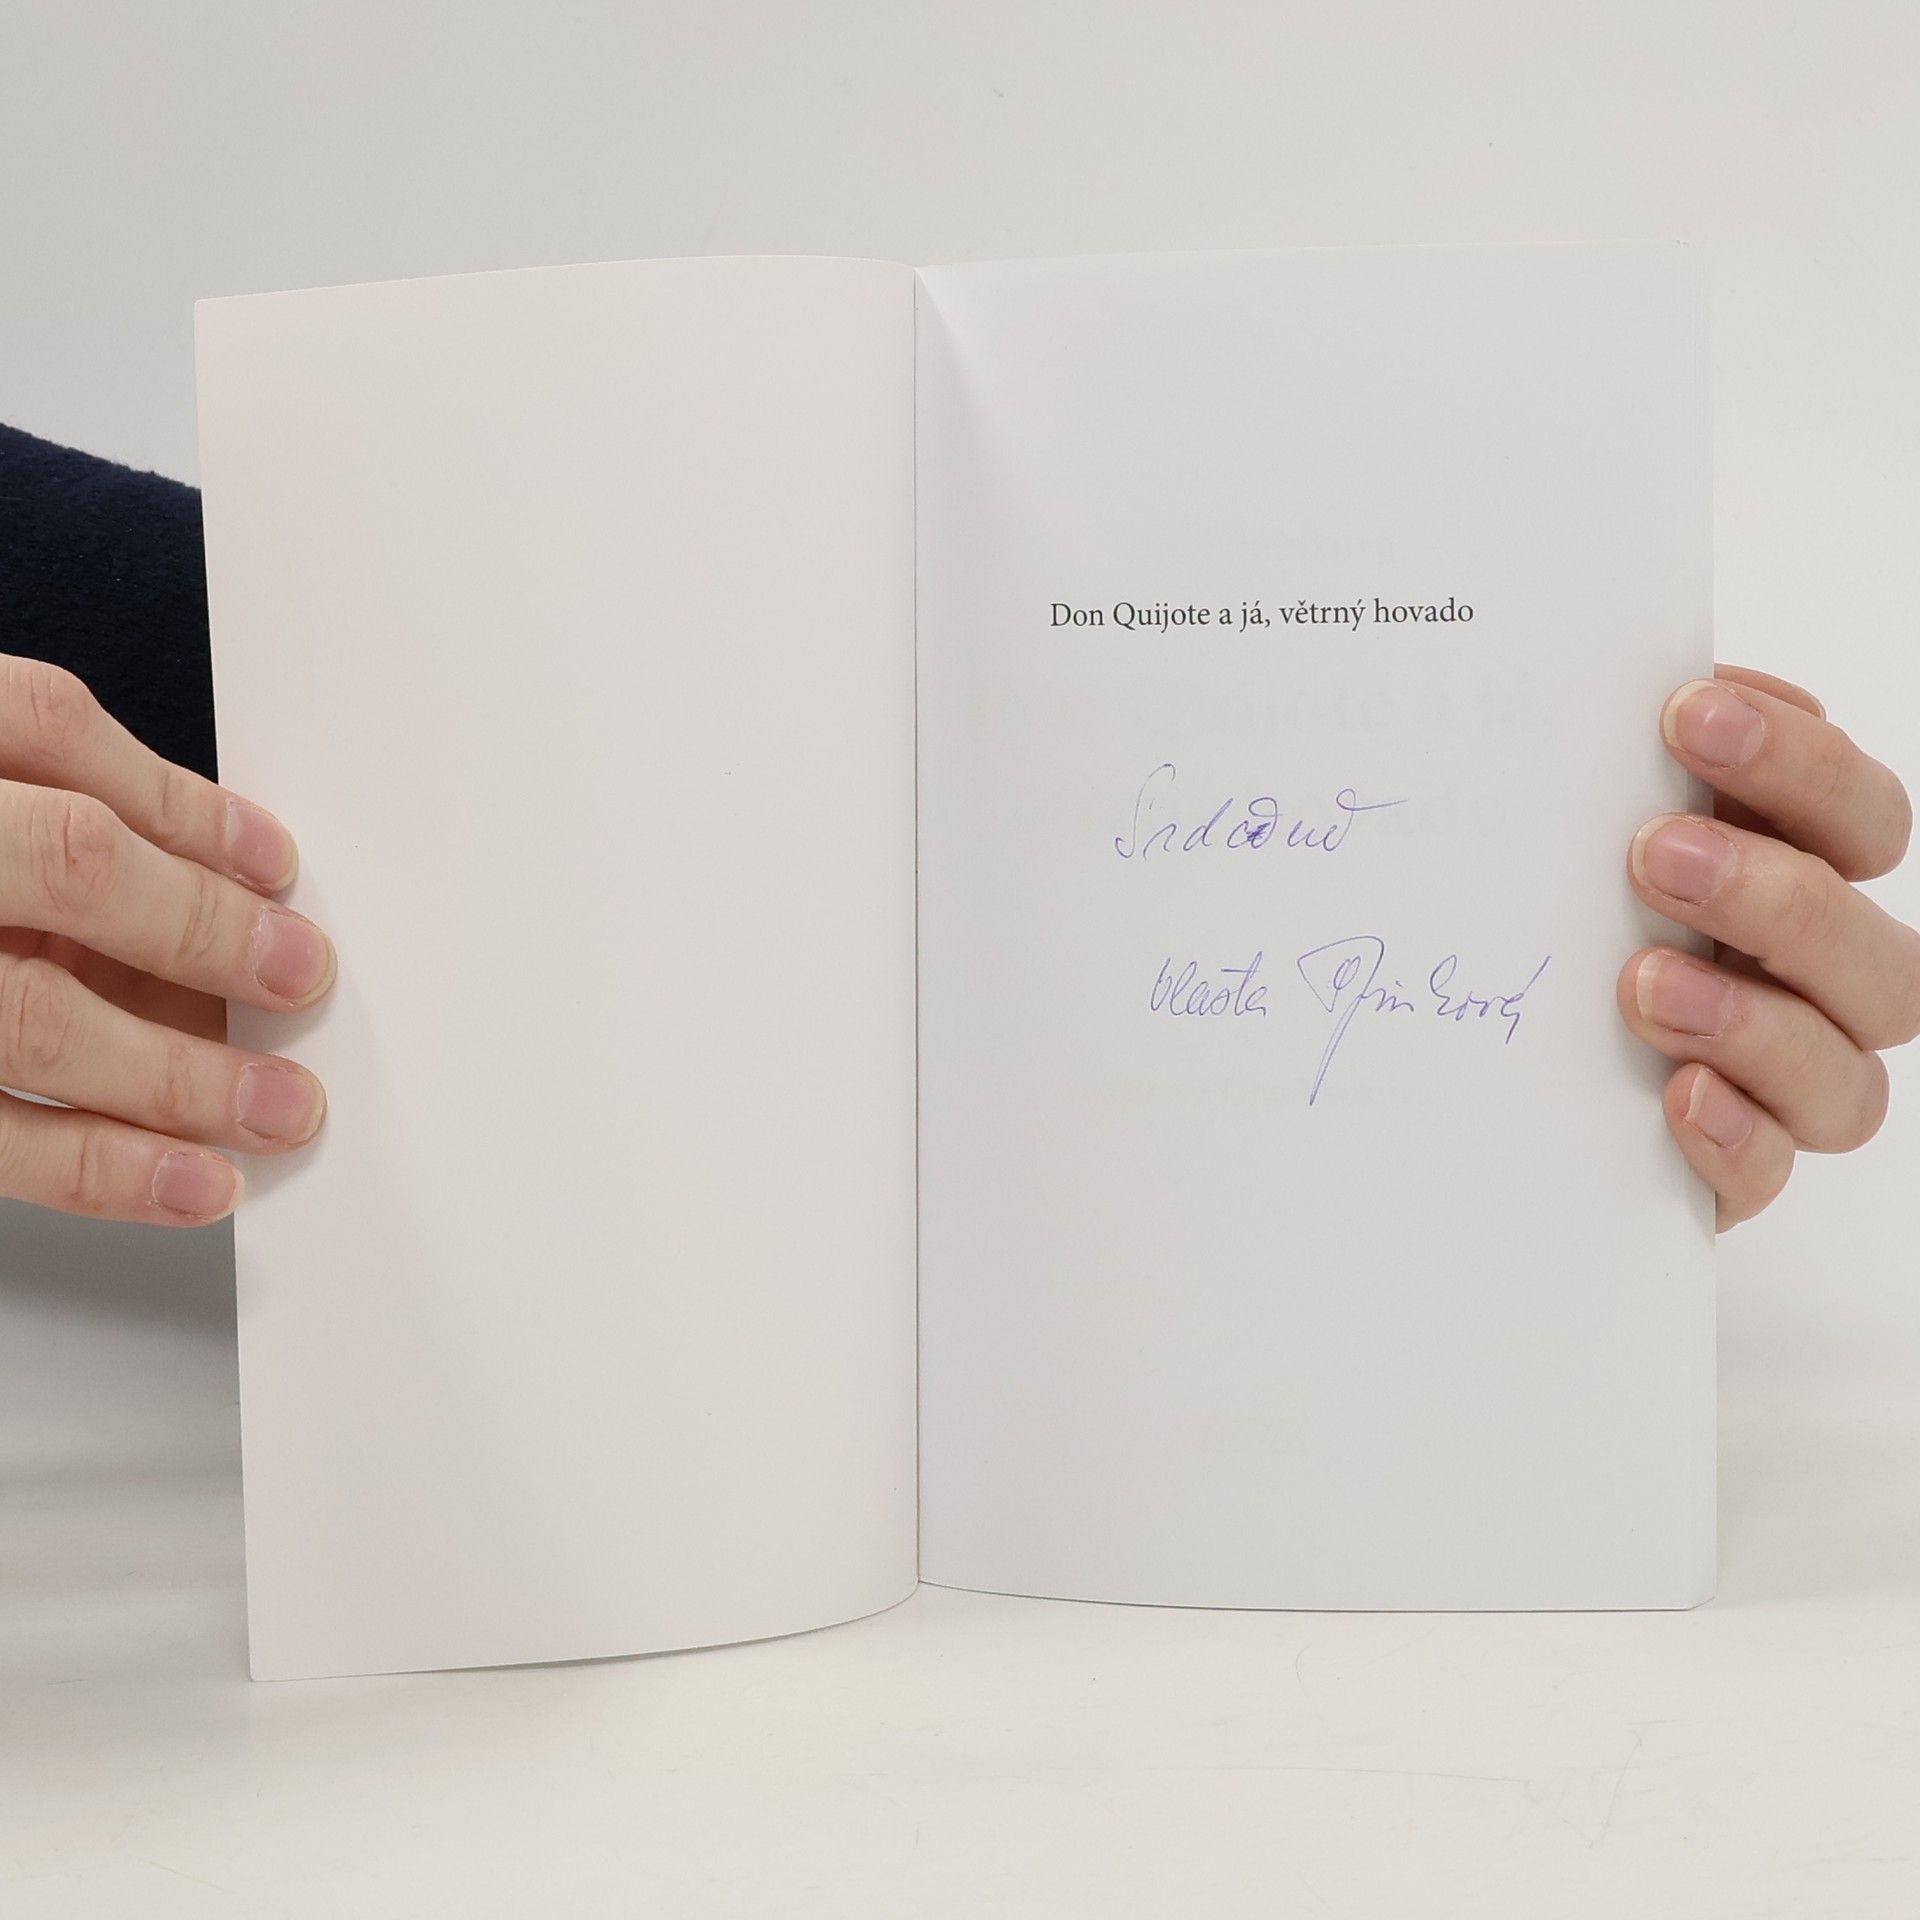 Don Quijote a já, větrný hovado
Srdečně
Vlasta